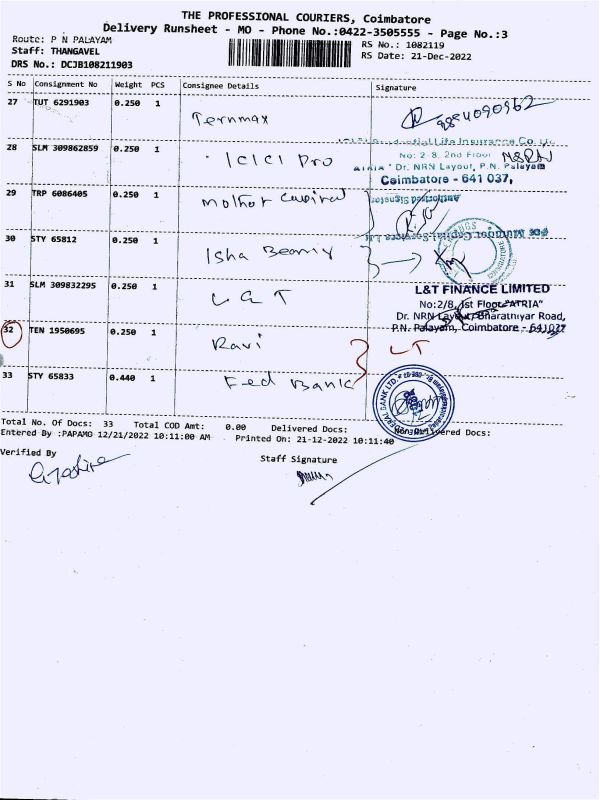 THE PROFESSIONAL COURIERS, Coimbatore
Delivery Runsheet - MO - Phone No.:0422-3505555 - Page No.:3
Route: P N PALAYAM
RS No.: 1082119
Staff: THANGAVEL
RS Date: 21-Dec-2022
DRS No.: DCJB108211903
S No Consignment No Weight PCS Consignee Details Signature
27 TUT 6291903 0.250 1 Ternmax
28 SLM 309862859 0.250 1 ICICI Pro
Life Insurance Co. Ltd
No: 2-8, 2nd Floor
"ATRIA" Dr. NRN Layout, P.N. Palayam
Coimbatore - 641 037,
29 TRP 6086405 0.250 1
Authorised Signatory
30 STY 65812 0.250 1 Isha
31 SLM 309832295 0.250 1 L & T
L&T FINANCE LIMITED
No:2/8, 1st Floor "ATRIA"
Dr. NRN Layout, Bharathiyar Road,
P.N. Palayam, Coimbatore - 641037
32 TEN 1950695 0.250 1 Ravi LT
33 STY 65833 0.440 1 Fed Bank
Total No. Of Docs: 33 Total COD Amt: 0.00 Delivered Docs: Non Delivered Docs:
Entered By :PAPAMO 12/21/2022 10:11:00 AM Printed On: 21-12-2022 10:11:40
Verified By
Staff Signature